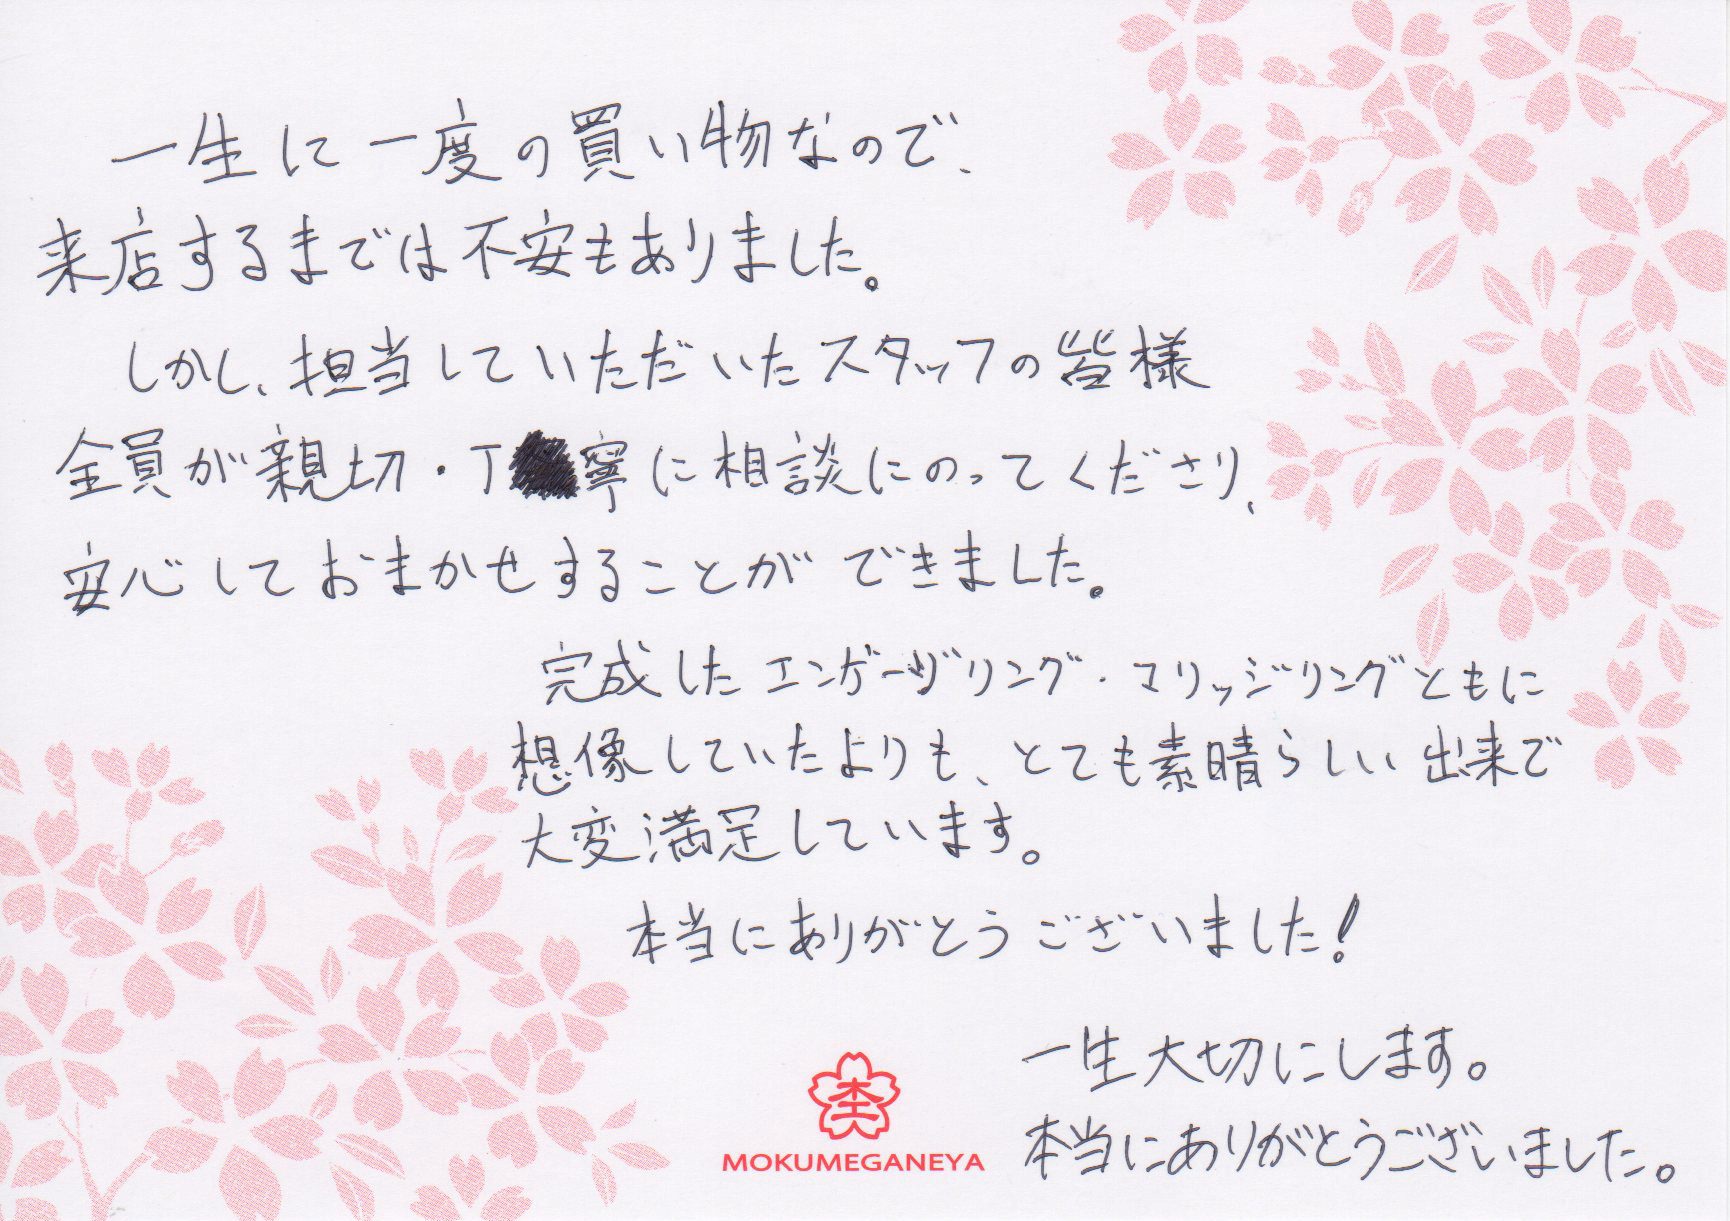 一生に一度の買い物なので、
来店するまでは不安もありました。
しかし、担当していただいたスタッフの皆様
全員が親切・丁寧に相談にのってくださり、
安心しておまかせすることができました。
完成したエンゲージリング・マリッジリングともに
想像していたよりも、とても素晴らしい出来で
大変満足しています。
本当にありがとうございました!
一生大切にします。
本当にありがとうございました。
杢
MOKUMEGANEYA